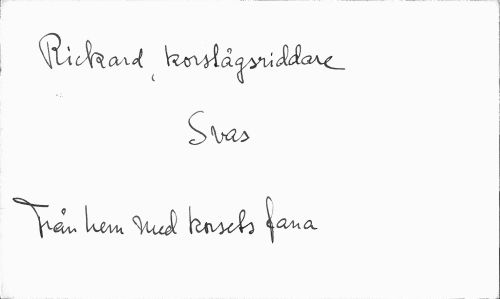 Rickard, korstågsriddare
Svas
Från hem med korsets fana